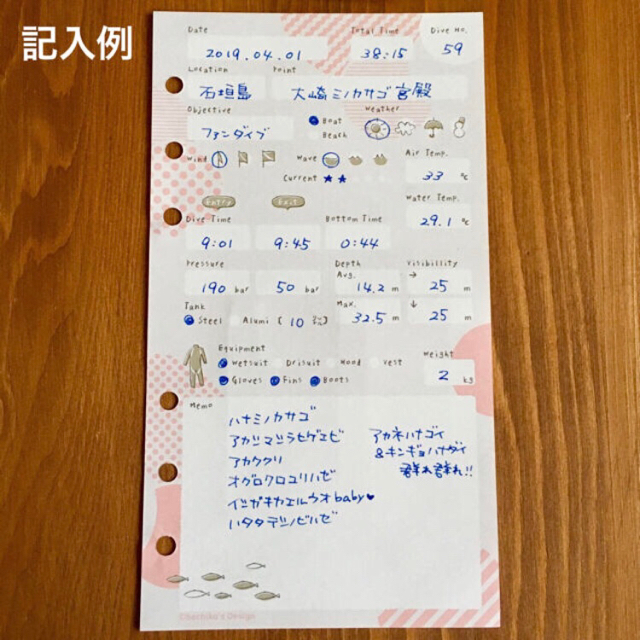 記入例
Date Total Time Dive No.
2019.04.01 38:15 59
Location Point
石垣島 大崎ミノカサゴ宮殿
Objective Boat Weather
ファンダイブ Beach
Wind Wave Air Temp.
Current ★★ 33 ℃
Entry Exit Water Temp.
Dive Time Bottom Time 29.1 ℃
9:01 9:45 0:44
Pressure Depth Visibillity
Avg. →
190 bar 50 bar 14.2 m 25 m
Tank Max. ↓
Steel Alumi [ 10 ㍑] 32.5 m 25 m
Equipment Weight
Wetsuit Drisuit Hood Vest
Gloves Fins Boots 2 kg
Memo
ハナミノカサゴ
アカシマシラヒゲエビ アカネハナゴイ
アカククリ &キンギョハナダイ
オグロクロユリハゼ 群れ群れ!!
イシガキカエルウオbaby♥
ハタタテシノビハゼ
©Sachiko's Design